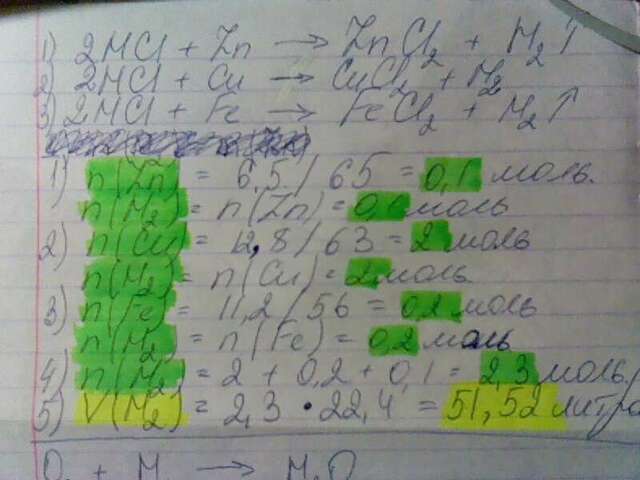 1) 2HCl + Zn → ZnCl₂ + H₂↑
2) 2HCl + Cu → CuCl₂ + H₂
3) 2HCl + Fe → FeCl₂ + H₂↑
1) n(Zn) = 6,5/65 = 0,1 моль.
n(H₂) = n(Zn) = 0,1 моль
2) n(Cu) = 12,8/63 = 2 моль
n(H₂) = n(Cu) = 2 моль
3) n(Fe) = 11,2/56 = 0,2 моль
n(H₂) = n(Fe) = 0,2 моль
4) n(H₂) = 2 + 0,2 + 0,1 = 2,3 моль
5) V(H₂) = 2,3 • 22,4 = 51,52 литра
O₂ + H₂ → H₂O